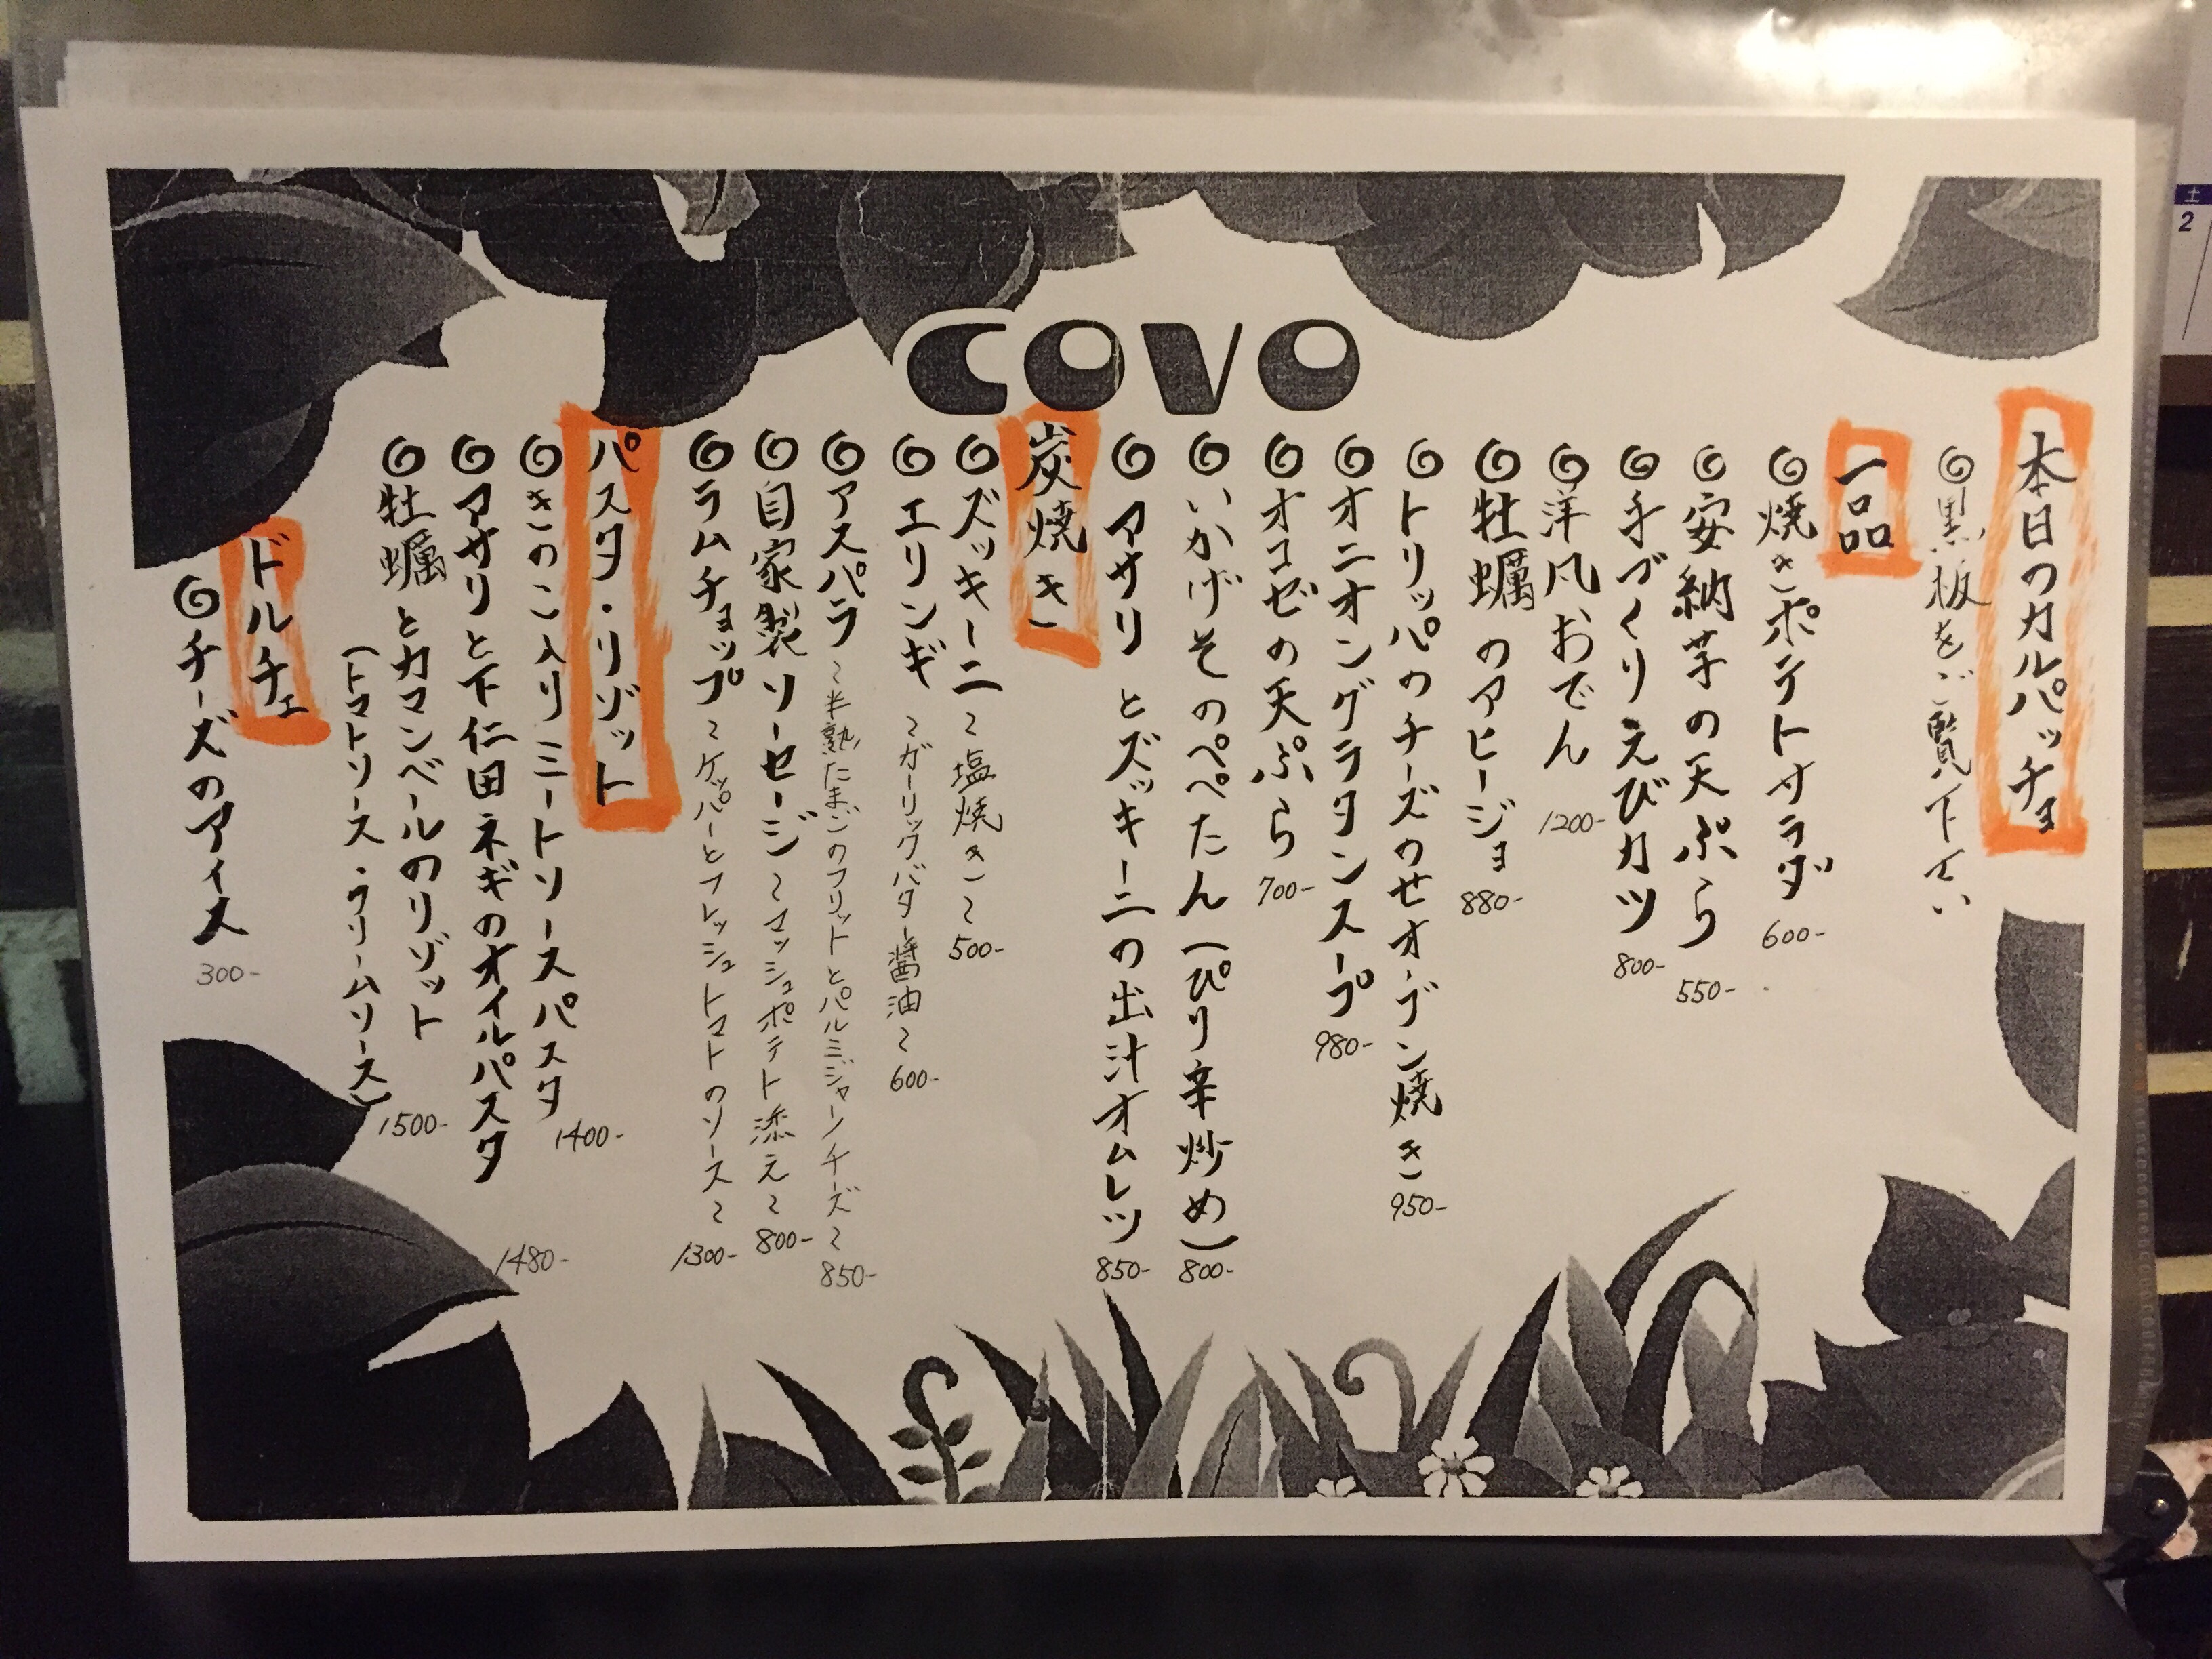 COVO
本日のカルパッチョ
黒板をご覧下さい
一品
焼きポテトサラダ 600-
安納芋の天ぷら 550-
手づくりえびカツ 800-
洋風おでん 1200-
牡蠣のアヒージョ 880-
トリッパのチーズのせオーブン焼き 950-
オニオングラタンスープ 980-
オコゼの天ぷら 700-
いかげそのペペたん(ぴり辛炒め) 800-
アサリとズッキーニの出汁オムレツ 850-
炭焼き
ズッキーニ〜塩焼き〜 500-
エリンギ 〜ガーリックバター醤油〜 600-
アスパラ〜半熟たまごのフリットとパルミジャーノチーズ〜 850-
自家製ソーセージ〜マッシュポテト添え〜 800-
ラムチョップ〜ケッパーとフレッシュトマトのソース〜 1300-
パスタ・リゾット
きのこ入りミートソースパスタ 1400-
アサリと下仁田ネギのオイルパスタ 1480-
牡蠣とカマンベールのリゾット
(トマトソース・クリームソース) 1500-
ドルチェ
チーズのアイス 300-
土
2